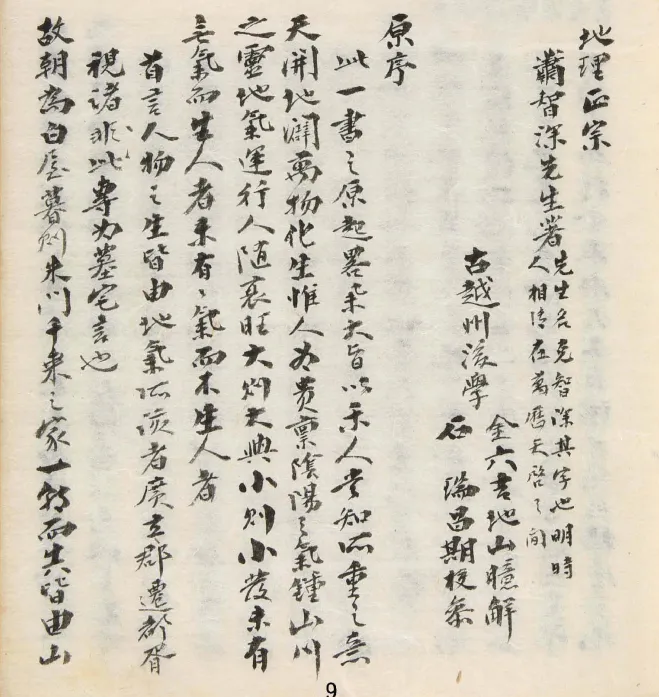 地理正宗
蕭智深先生著先生名克智深其字也明時
人相傳在萬曆天啓之間
古越州後學
金六吉地山臆解
石瑞昌期校叅
原序
此一書之原起畧采大旨以示人當知所重之意
天開地闢萬物化生惟人為貴禀陰陽之氣鍾山川
之靈地氣運行人随衰旺大則大興小則小發未有
無氣而生人者未有氣而不生人者
首言人物之生皆由地氣所該者廣立郡遷都胥
視諸此非專為墓宅言也
故朝為白屋暮則朱門千乘之家一朝而失皆由山
9